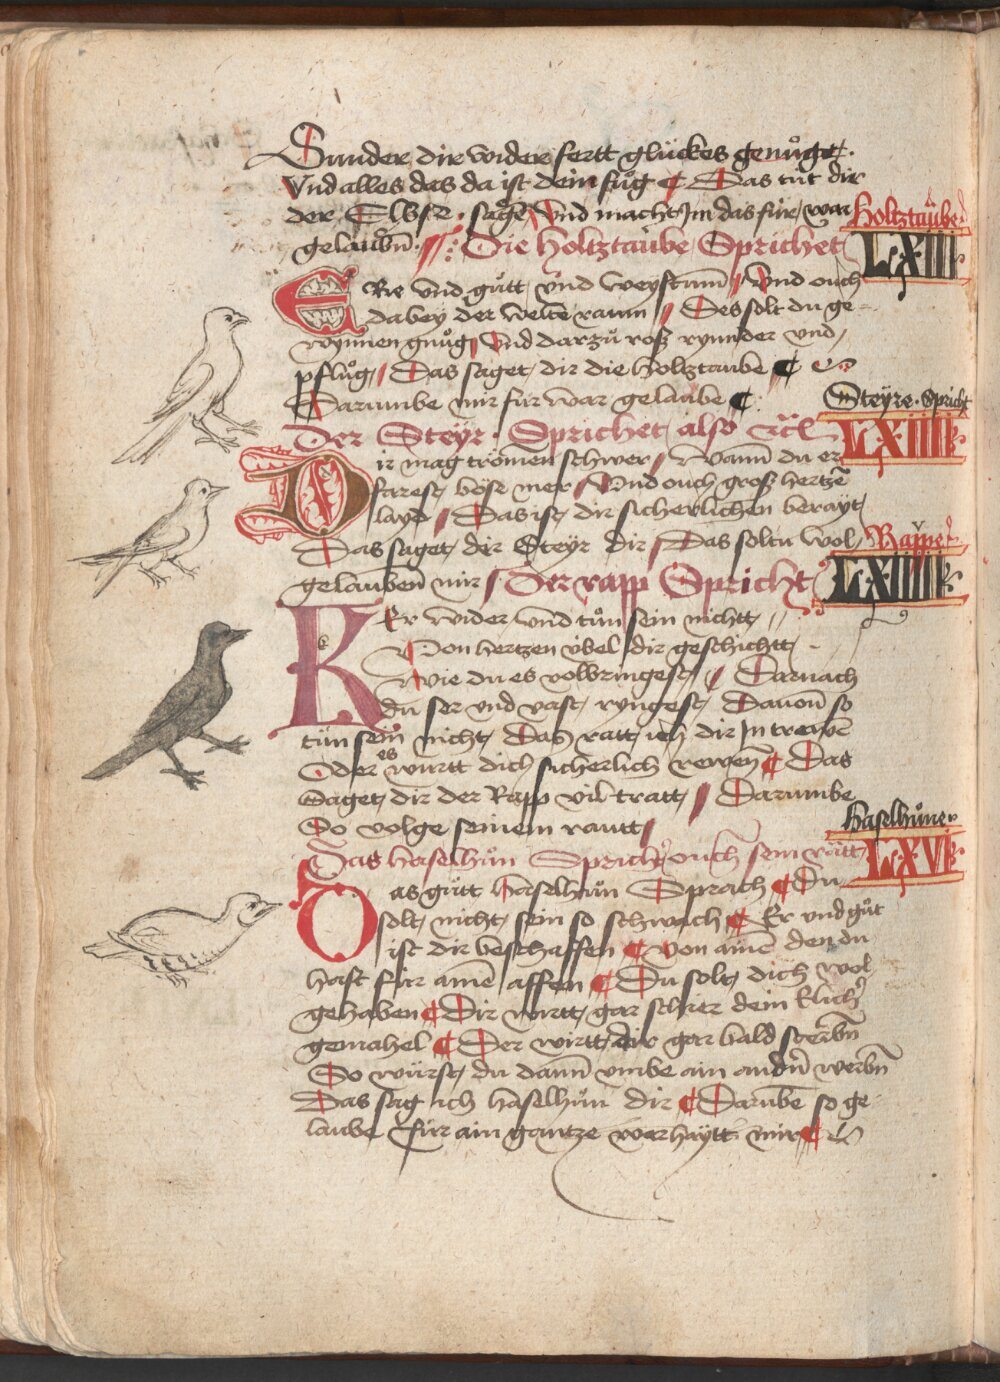 Sunder dir widerfertt glückes genůgt.
Vnd alles das da ist dein fůg Das tůt dir
der Elbſz sagē Vnd macht Im das für war
gelaubn̄ Die holtztaube Sprichet
Holtztaube
LXIII
ERe vnd gůtt vnd weystum̄ Vnd ouch
dabey der welte raum Des solt du ge-
wynnen gnůg Vnd darzů roß rynnder vnd
pflůg Das saget dir die holtztaube
Darumbe mir für war gelaube
Steÿre Spricht
LXIIII
Der Steÿr Sprichet also
Dir mag tromen schwer Wann du er
farest böse mer Vnd ouch groß hertzē
layd Das ist dir sicherlichen berayt
Das saget dir Steÿr dir Das soltu wol
Rappe
LXIIIII
gelauben mir Der rapp Spricht
KEr wider vnd tůn sein nichtt
Von hertzen vbel dir geschichtt
Wie du es volbringest Darnach
du ser vnd vast ryngest Dauon so
tůn sein nicht Das ratt ich dir In trewē
Oder es wurtt dich sicherlich rewen Das
Saget dir der Rapp vil tratt Darumbe
So volge seinem rautt
Haselhůner
LXVI
Das haselhůn Spricht ouch sein rätt
Das gůtt haselhůn Sprach Du
solt nicht sein so schwach Er vnd gůt
ist dir beschaffen von ainē den du
hast für ainē affen Du solt dich wol
gehaben Dir wirtt gar schier dein
gemahel Der wirtt dir gar bald sterbn̄
So würst du dann̄ vmbe ain andn̄ werbn̄
Das sag ich haselhůn dir Darūbe so ge-
laube für ain gantze warhaytt mir